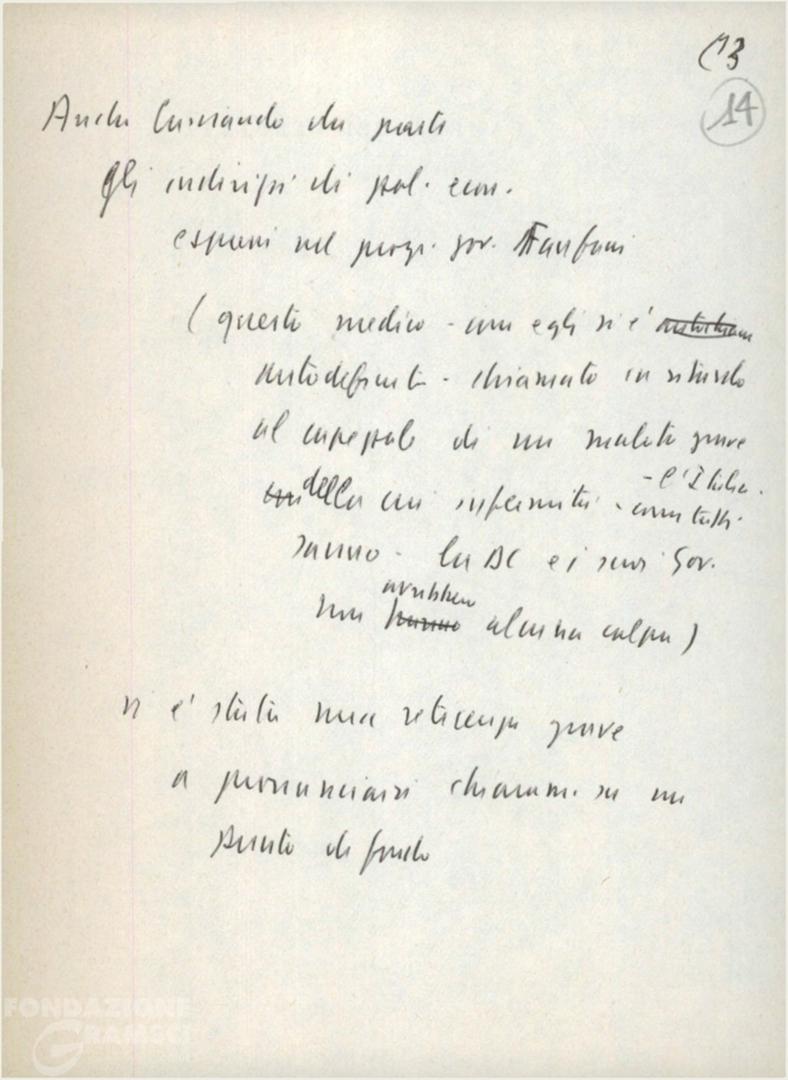 13
14
Anche lasciando da parte
gli indirizzi di pol. econ.
espressi nel progr. gov. Fanfani
(questo medico - come egli si è
autodefinito - chiamato in ritardo
al capezzale di un malato grave
- l'Italia -
della cui infermità - come tutti
sanno - la DC e i suoi Gov.
avrebbero
non hanno alcuna colpa)
vi è stata una reticenza grave
a pronunciarsi chiaram. su un
punto di fondo
FONDAZIONE
GRAMSCI